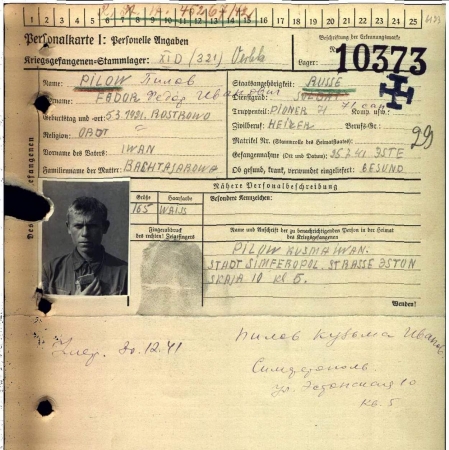 1 2 3 4 5 6 7 8 9 10 11 12 13 14 15 16 17 18 19 20 21 22 23 24 25
Personalkarte I: Personelle Angaben
Kriegsgefangenen-Stammlager: XI D (321)
Beschriftung der Erkennungsmarke
Nr. 10373
Lager:
Name: PILOW Пилов
Vorname: FEDOR Федор Иванович
Geburtstag und -ort: 5.3.1921. ROSTROWO
Religion: ORDT
Vorname des Vaters: IWAN
Familienname der Mutter: BACHTAJAROWA
Staatsangehörigkeit: RUSSE
Dienstgrad: SOLDAT
Truppenteil: PIONER 71 Komp. usw.:
Zivilberuf: HEIZER Berufs-Gr.:
Matrikel Nr. (Stammrolle des Heimatstaates):
Gefangennahme (Ort und Datum): 41 ESTE
Ob gesund, krank, verwundet eingeliefert: GESUND
29
Des Kriegsgefangenen
Nähere Personalbeschreibung
Größe Haarfarbe
165 WAISS
Besondere Kennzeichen:
Fingerabdruck
des rechten! Zeigefingers
Name und Anschrift der zu benachrichtigenden Person in der Heimat
des Kriegsgefangenen
PILOW KUSMA IWAN:
STADT SIMFEROPOL. STRASSE ESTON
SKAJA 10 KW 5.
Wenden!
Умер. 20.12.41
Пилов Кузьма Иванов.
Симферополь.
ул. Эстонская 10
кв. 5